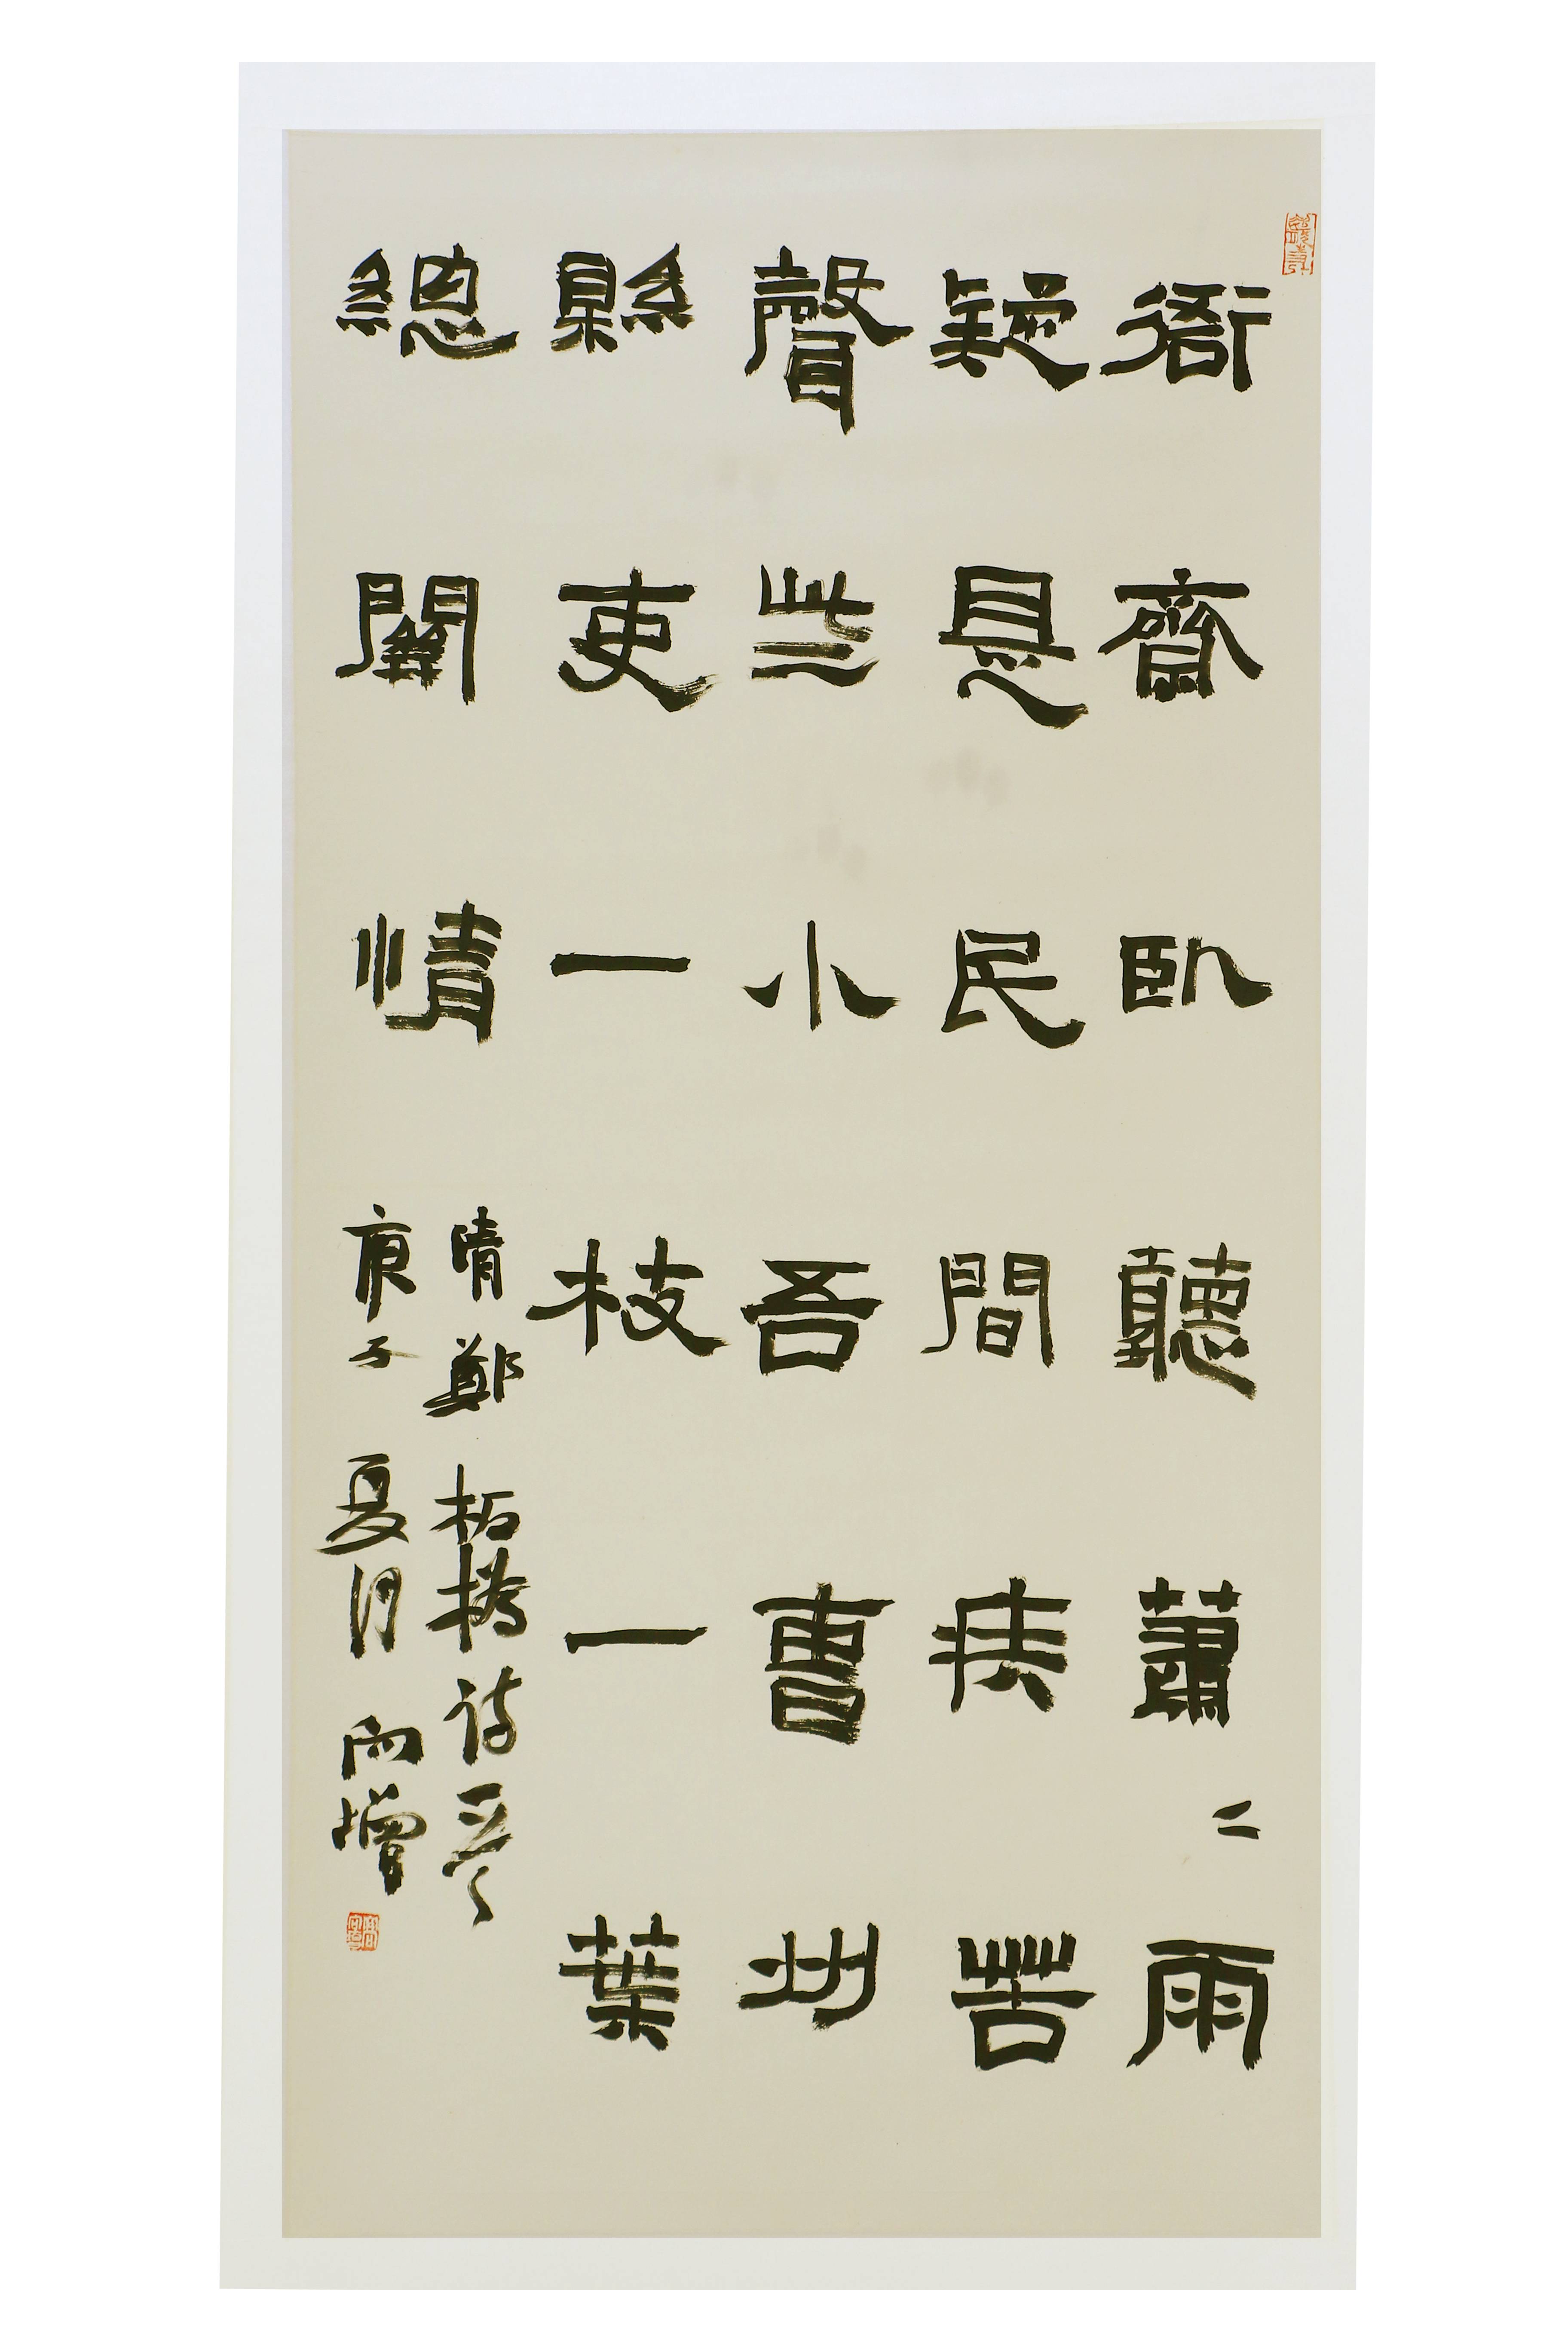 衙齋卧聽蕭〻雨
疑是民間疾苦
聲些小吾曹州
縣吏一枝一葉
總關情
清鄭板橋詩一首
庚子夏月 增